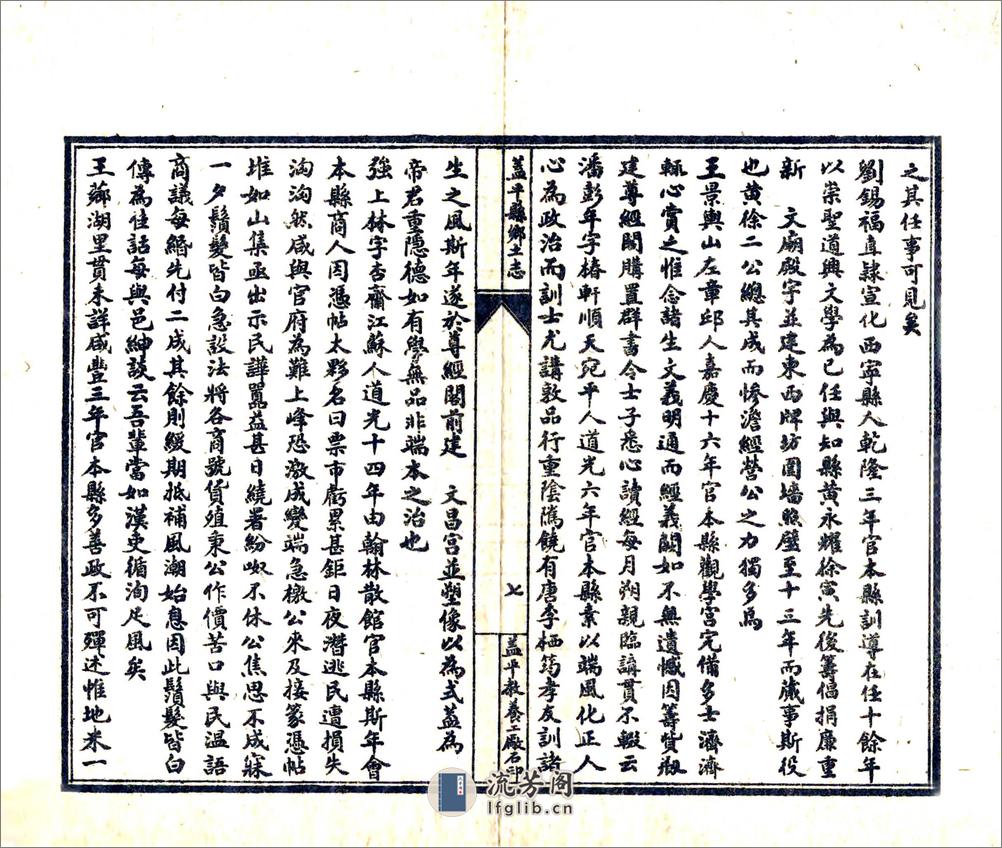 之其任事可見矣
劉錫福直隸宣化西寧縣人乾隆三年官本縣訓導在任十餘年
以崇聖道興文學為己任與知縣黃永耀徐寅先後籌倡捐廉重
新　文廟殿宇並建東西牌坊圍墻照壁至十三年而蕆事斯役
也黃徐二公總其成而慘澹經營公之力獨多焉
王景興山左章邱人嘉慶十六年官本縣觀學宮完備多士濟濟
輒心賞之惟念諸生文義明通而經義闕如不無遺憾因籌貲剏
建尊經閣購置群書令士子悉心讀經每月朔親臨講貫不輟云
潘彭年字椿軒順天宛平人道光六年官本縣素以端風化正人
心為政治而訓士尤講敦品行重陰隲饒有唐李栖筠孝友訓諸
蓋平縣鄉土志
七
蓋平教養工廠石印
生之風斯年遂於尊經閣前建　文昌宮並塑像以為式蓋為
帝君重隱德如有學無品非端本之治也
強上林字杏齋江蘇人道光十四年由翰林散館官本縣斯年會
本縣商人因憑帖太夥名曰票市虧累甚鉅日夜潛逃民遭損失
洶洶然咸與官府為難上峰恐激成變端急檄公來及接篆憑帖
堆如山集亟出示民譁囂益甚日繞署紛呶不休公焦思不成寐
一夕鬚髮皆白急設法將各商號貨殖秉公作價苦口與民温語
商議每緡先付二成其餘則緩期抵補風潮始息因此鬚髮皆白
傳為佳話每與邑紳談云吾輩當如漢吏循洵足風矣
王薌湖里貫未詳咸豐三年官本縣多善政不可殫述惟地米一
流芳阁
lfglib.cn